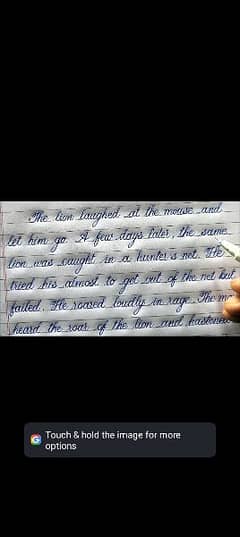 The lion laughed at the mouse and
let him go. A few days later, the same
lion was caught in a hunter's net. He
tried his atmost to get out of the net but
failed. He roared loudly in rage. The
heard the roar of the lion and hastened
Touch & hold the image for more
options